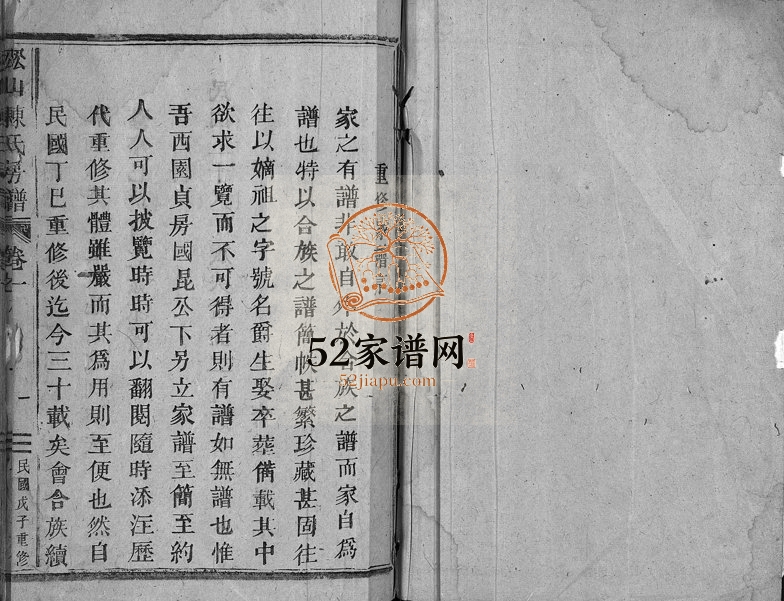 重修家譜
家之有譜非敢自外於合族之譜而家自為
譜也特以合族之譜簡帙甚繁珍藏甚固往
往以嫡祖之字號名爵生娶卒葬俻載其中
欲求一覽而不可得者則有譜如無譜也惟
吾西園貞房國昆公下另立家譜至簡至約
人人可以披覽時時可以翻閱隨時添注歷
代重修其體雖嚴而其為用則至便也然自
民國丁巳重修後迄今三十載矣會合族續
山陳氏房譜
卷一
一
民國戊子重修
52家谱网
52jiapu.com